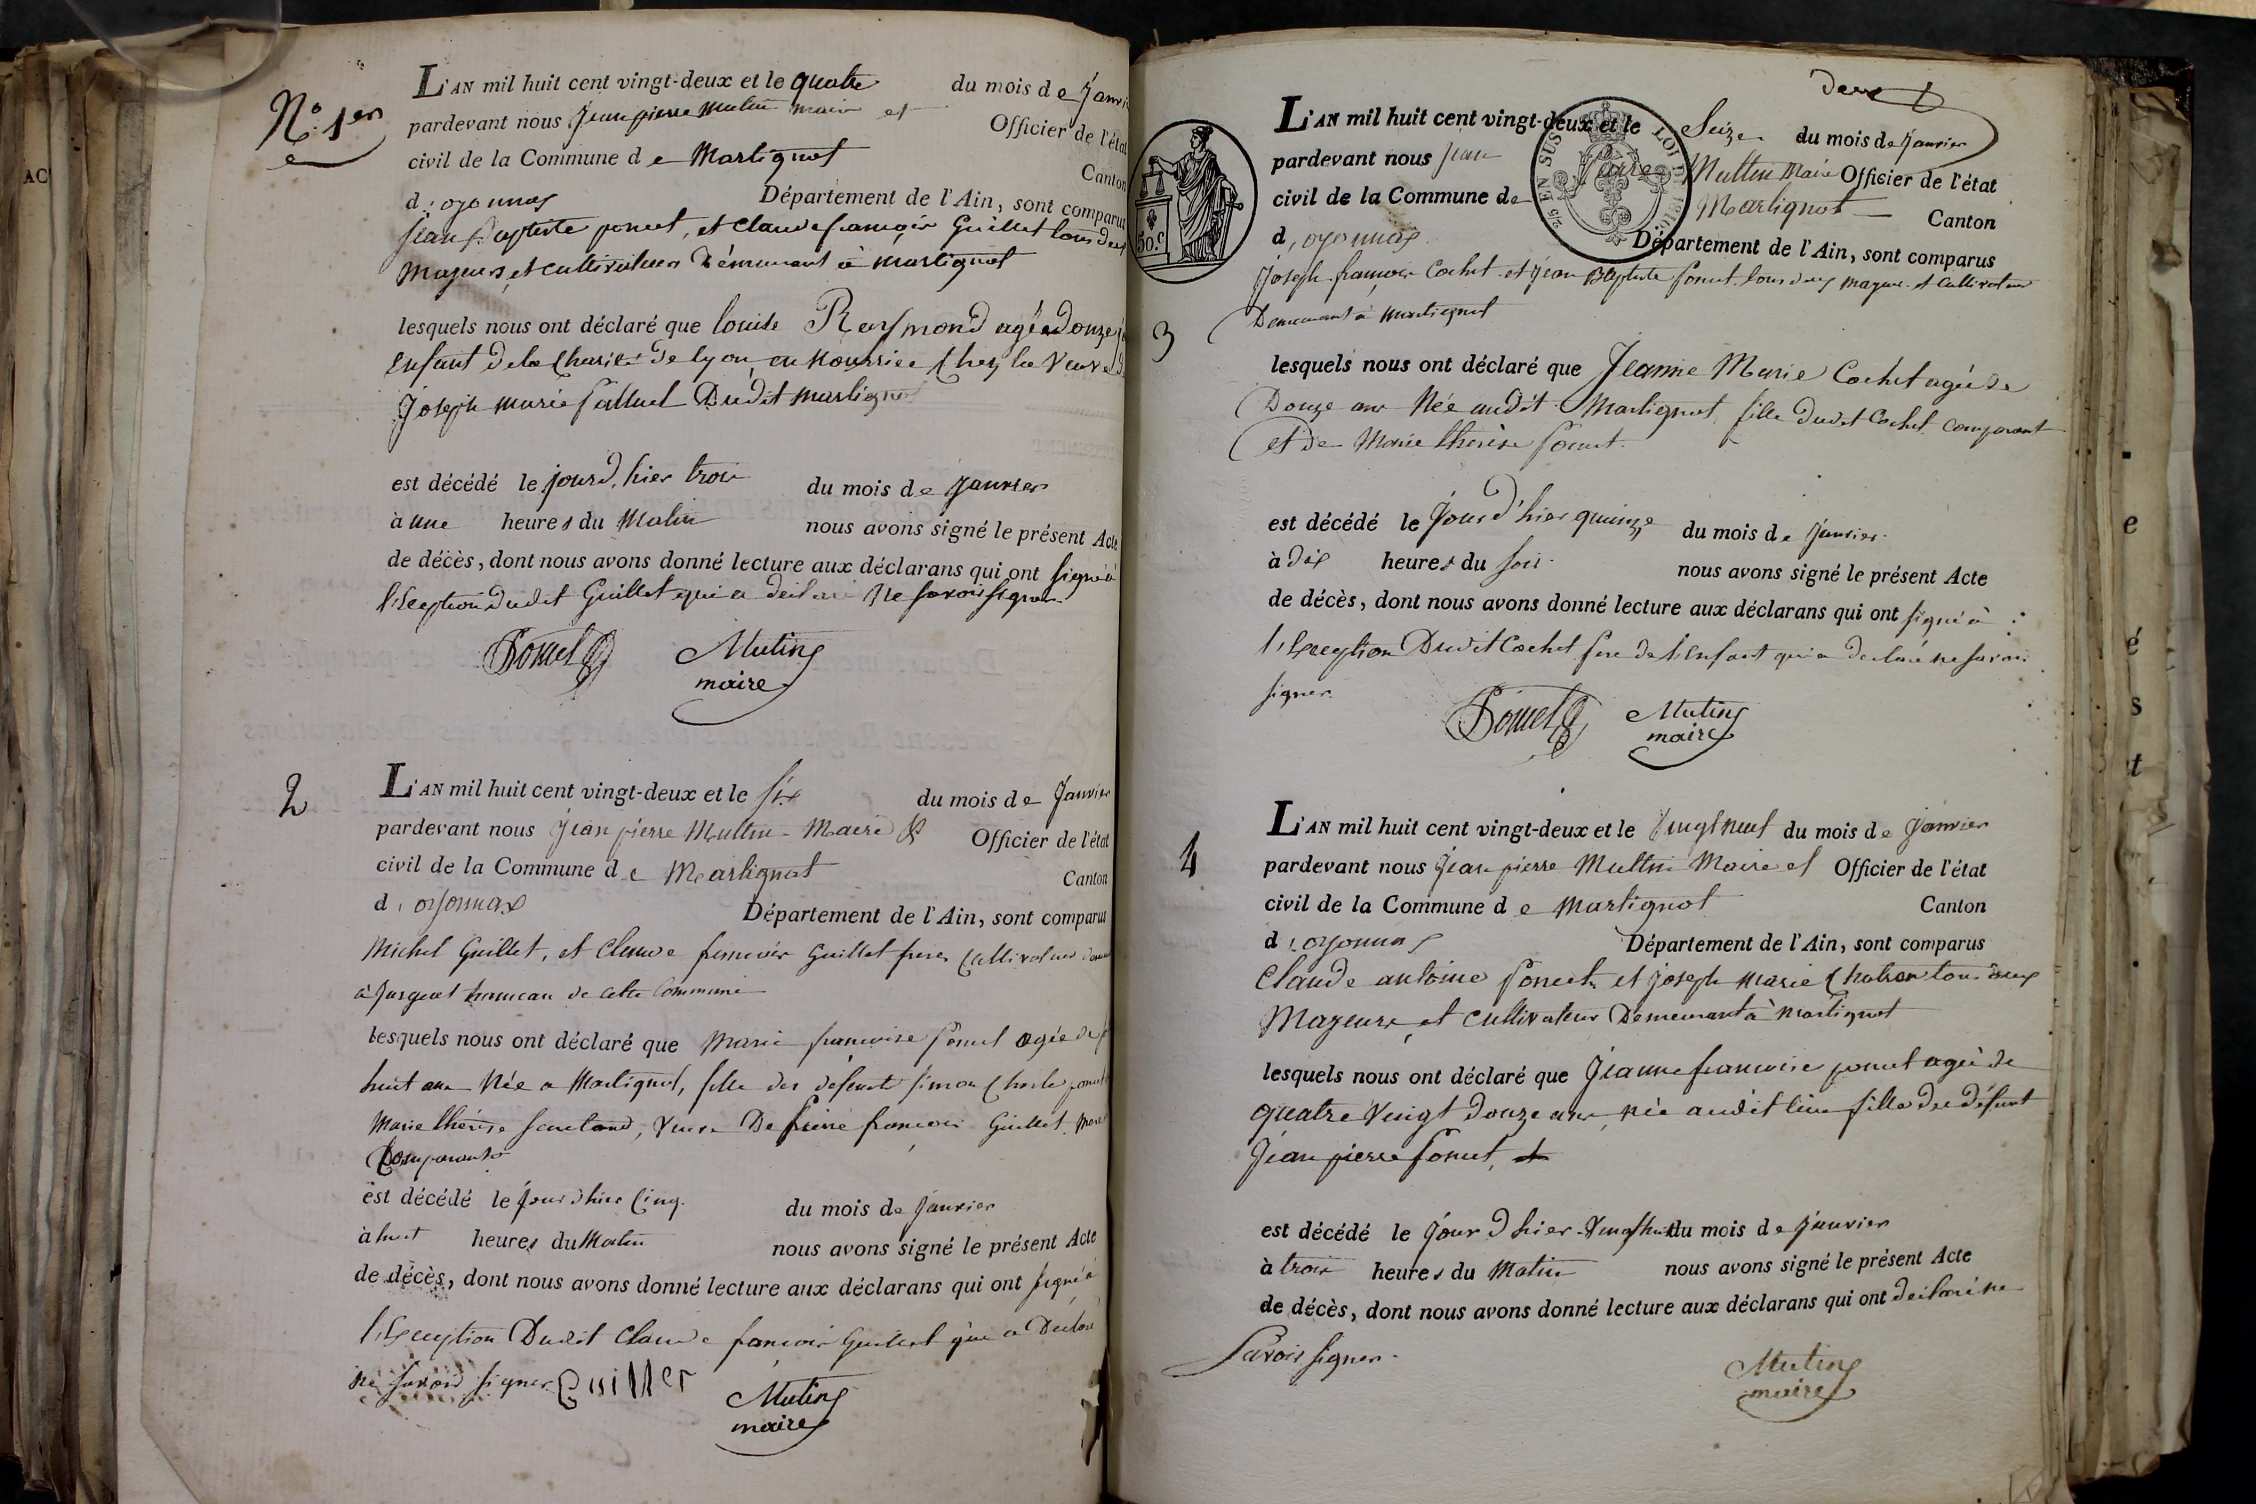 N.o 1er
L'AN mil huit cent vingt-deux et le quatre du mois de Janvier
pardevant nous Jean pierre Mutin maire et Officier de l'état
civil de la Commune de Martignat Canton
d'oyonnax Département de l'Ain, sont comparus
Jean Baptiste poncet, et Claude françois Guillet tous deux
Majeurs, et cultivateurs Demeurant à Martignat
lesquels nous ont déclaré que louise Raymond agée de Donze
Enfant de la Charité de lyon, en Nourrice Chez la Veuve
Joseph marie Dudit martignat
est décédé le jour d'hier trois du mois de Janvier
à une heures du Matin nous avons signé le présent Acte
de décès, dont nous avons donné lecture aux déclarans qui ont signé à
l'Exception Dudit Guillet qui a déclaré Ne savoir signer
Poncet Mutin
maire
2
L'AN mil huit cent vingt-deux et le six du mois de Janvier
pardevant nous Jean pierre Muttin Maire & Officier de l'état
civil de la Commune de Martignat Canton
d'oyonnax Département de l'Ain, sont comparus
Michel Guillet, et Claude francois Guillet freres Cultivateurs
à Jurgeat hameau de cette Commune
lesquels nous ont déclaré que Marie francoise Poncet agée de
huit ans Née a Martignat, fille des défunts simon Charles poncet
Marie thérèse, Veuve De Pierre françois Guillet, Mere
Comparants
est décédé le jour d'hier Cinq du mois de Janvier
à huit heures du Matin nous avons signé le présent Acte
de décès, dont nous avons donné lecture aux déclarans qui ont signé à
l'Exception Dudit Claude francois Guillet qui a Déclaré
ne savoir signer Guillet Mutin
maire
deux
L'AN mil huit cent vingt-deux et le Seize du mois de Janvier
pardevant nous Jean Pierre Muttin Maire Officier de l'état
civil de la Commune de Martignat Canton
d'oyonnax Département de l'Ain, sont comparus
25 EN SUS LOI DE 1816
50.c
Joseph françois Cochet et Jean Baptiste Poncet tous deux majeurs et Cultivateurs
Demeurant à Martignat
3
lesquels nous ont déclaré que Jeanne Marie Cochet agée de
Douze ans Née audit Martignat fille dudit Cochet Comparant
et de Marie thérèse Poncet
est décédé le Jour d'hier quinze du mois de Janvier
à dix heures du soir nous avons signé le présent Acte
de décès, dont nous avons donné lecture aux déclarans qui ont signé à
l'Exception Dudit Cochet pere de l'Enfant qui a déclaré ne savoir
signer
Poncet Mutin
maire
4
L'AN mil huit cent vingt-deux et le Vingt neuf du mois de Janvier
pardevant nous Jean pierre Muttin Maire et Officier de l'état
civil de la Commune de Martignat Canton
d'oyonnax Département de l'Ain, sont comparus
Claude antoine Poncet et Joseph Marie tous deux
Majeurs, et Cultivateurs Demeurant à Martignat
lesquels nous ont déclaré que Jeanne francoise poncet agée de
quatre Vingt Douze ans, née audit lieu fille du défunt
Jean pierre Poncet,
est décédé le Jour d'hier Vingt huit du mois de Janvier
à trois heures du Matin nous avons signé le présent Acte
de décès, dont nous avons donné lecture aux déclarans qui ont déclaré ne
Savoir signer
Mutin
maire